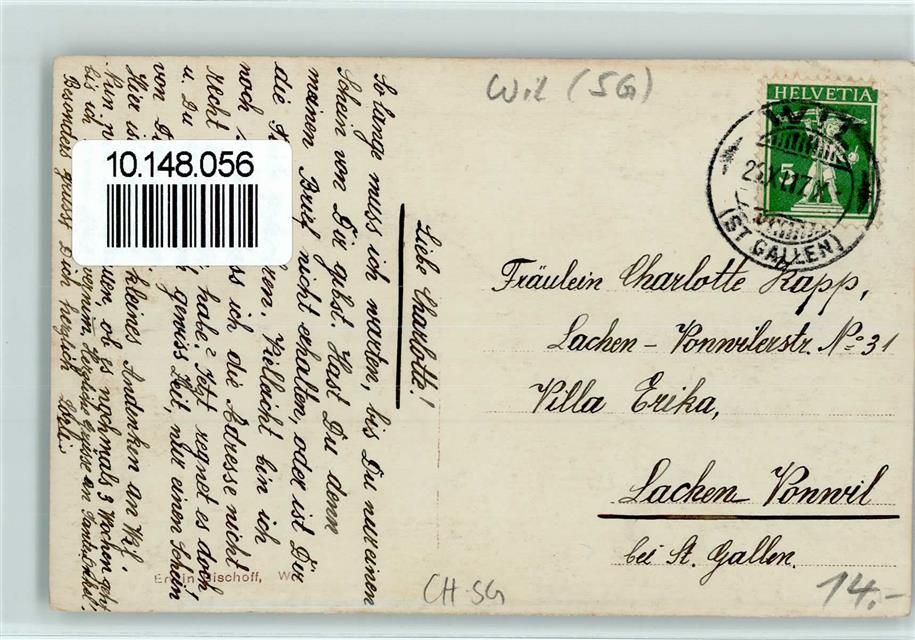 Wil (SG)
HELVETIA
5
WIL
(ST GALLEN)
10.148.056
Fräulein Charlotte Rapp,
Lachen-Vonwilerstr. No 31
Villa Erika,
Lachen-Vonwil
bei St. Gallen.
Liebe Charlotte!
So lange muss ich warten, bis Du nur einen
Schein von Dir gibst. Hast Du denn
meinen Brief nicht erhalten, oder ist Dir
die
noch hen. Vielleicht bin ich
Recht ss ich die Adresse nicht
u. Du habe? Jetzt regnet es doch
von gewiss Zeit, nur einen Schein
Hier is kleines Andenken an Wil.
Nun ob Es nochmals 3 Wochen geht
bis ich vernimm. Herzliche Grüsse an Tante, Onkel
Besonders grüsst Dich herzlich
Bischoff, W
CH-SG
14.-